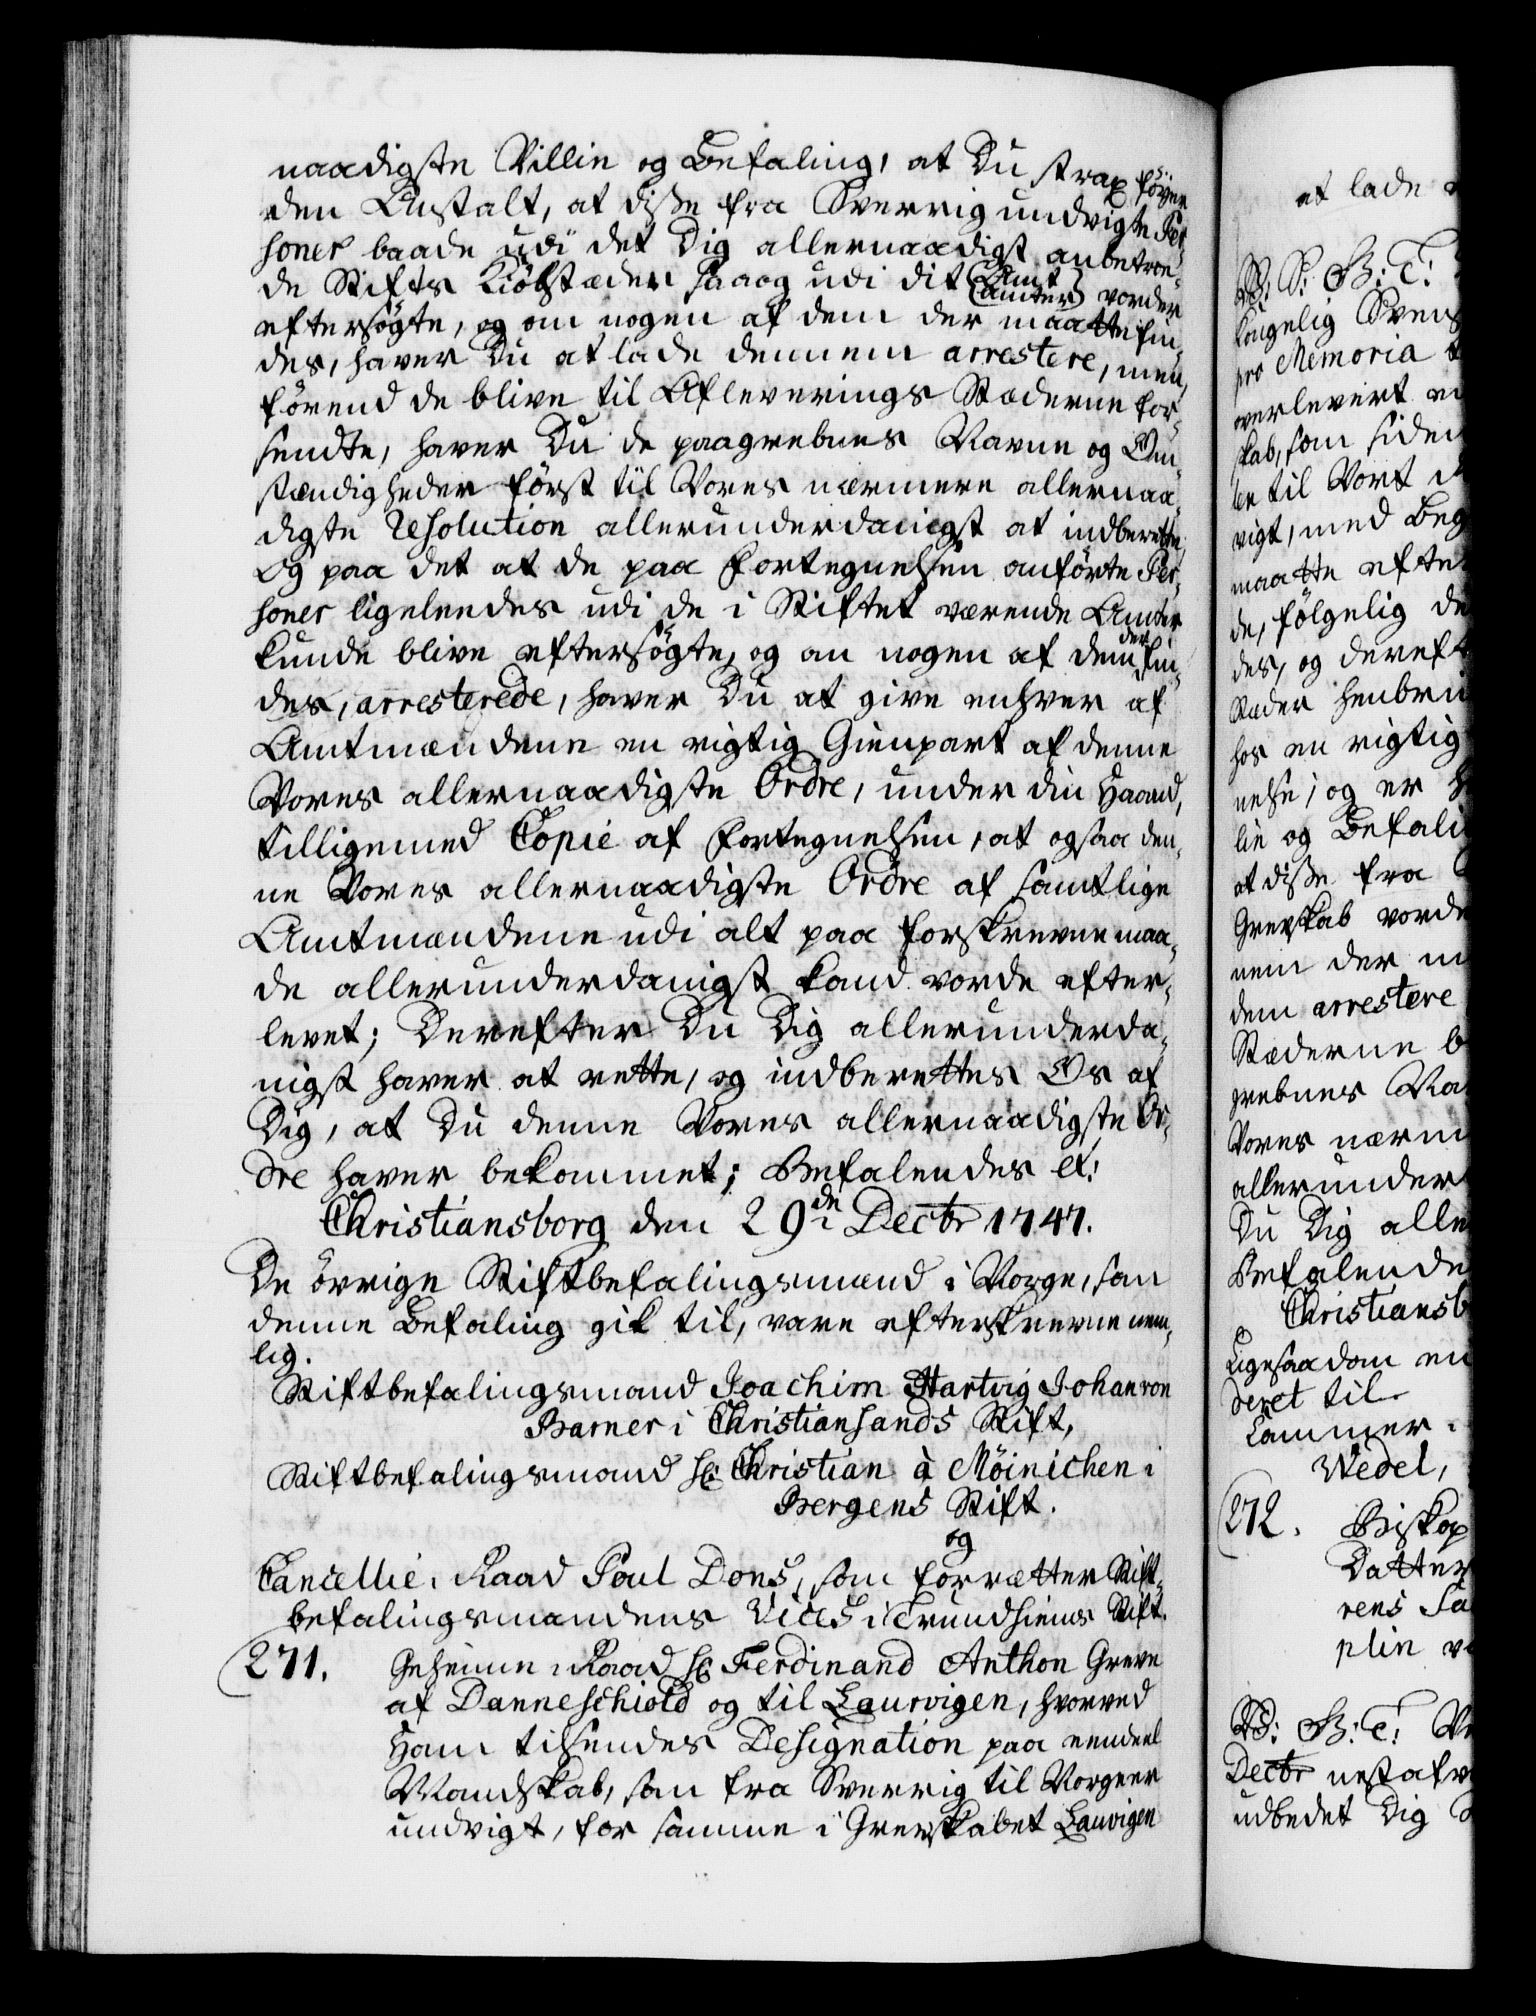 naadigste Villie og Befaling, at Du strax föyer
den Anstalt, at disse fra Sverrig undvigte Per-
soner baade udi det Dig allernaadigst anbetroe-
de Stifts Kiöbstæder saa og udi dit (Amt
(Amter) vorder
eftersögte, og om nogen af dem der maatte fin-
des, haver Du at lade dennem arrestere, men,
förend de blive til Afleverings Stæderne for-
sendte, haver Du de paagrebnes Navne og Om-
stændigheder först til Vores nærmere allernaa-
digste Resolution allerunderdanigst at indberette,
Og paa det at de paa Fortegnelsen anförte Per-
soner ligeleedes udi de i Stiftet værende Amter
kunde blive eftersögte, og om nogen af dem der fin-
des, arresterede, haver Du at give enhver af
Amtmændene en rigtig Gienpart af denne
Vores allernaadigste Ordre, under din Haand,
tilligemed Copie af Fortegnelsen, at ogsaa den-
ne Vores allernaadigste Ordre af samtlige
Amtmændene udi alt paa forskrevne maa-
de allerunderdanigst kand vorde efter-
levet; Derefter Du Dig allerunderda-
nigst haver at rette, og indberettes Os af
Dig, at Du denne Vores allernaadigste Or-
dre haver bekommet; Befalendes et:
Christiansborg den 29de Decbr 1747.
De övrige Stiftbefalingsmænd i Norge, som
denne Befaling gik til, vare efterskrevne nem-
lig.
Stiftbefalingsmand Joachim Hartvig Johan von
Barner i Christiansands Stift,
Stiftbefalingsmand Hr Christian à Möinichen i
Bergens Stift.
og
Cancellie-Raad Poul Dons, som forretter Stift-
befalingsmandens Vices i Trundhiems Stift.
271. Geheime-Raad Hr Ferdinand Anthon Greve
af Danneschiold og til Laurvigen, hvorved
Ham tilsendes Designation paa eendeel
Mandskab, som fra Sverrig til Norge er
undvigt, for samme i Grevskabet Laurvigen
at lade
V: S: G: T:
Kongelig Svens
pro Memoria
overlevert
skab, som siden
til Vort
vigt, med Beg
maatte efte
de, fölgelig de
des, og dereft
Stæder henbri
hos en rigtig
nelse; og er
lie og Befali
at disse fra
Grevskab vorde
nem der
dem arrestere
Stæderne b
grebnes Na
Vores nærm
allerunder
Du Dig alle
Befalende
Christiansb
Ligesaadan en
deret til
Cammer-
Wedel,
272. Biskop
Datter
rens
plin
Decbr nestafv
udbedet Dig